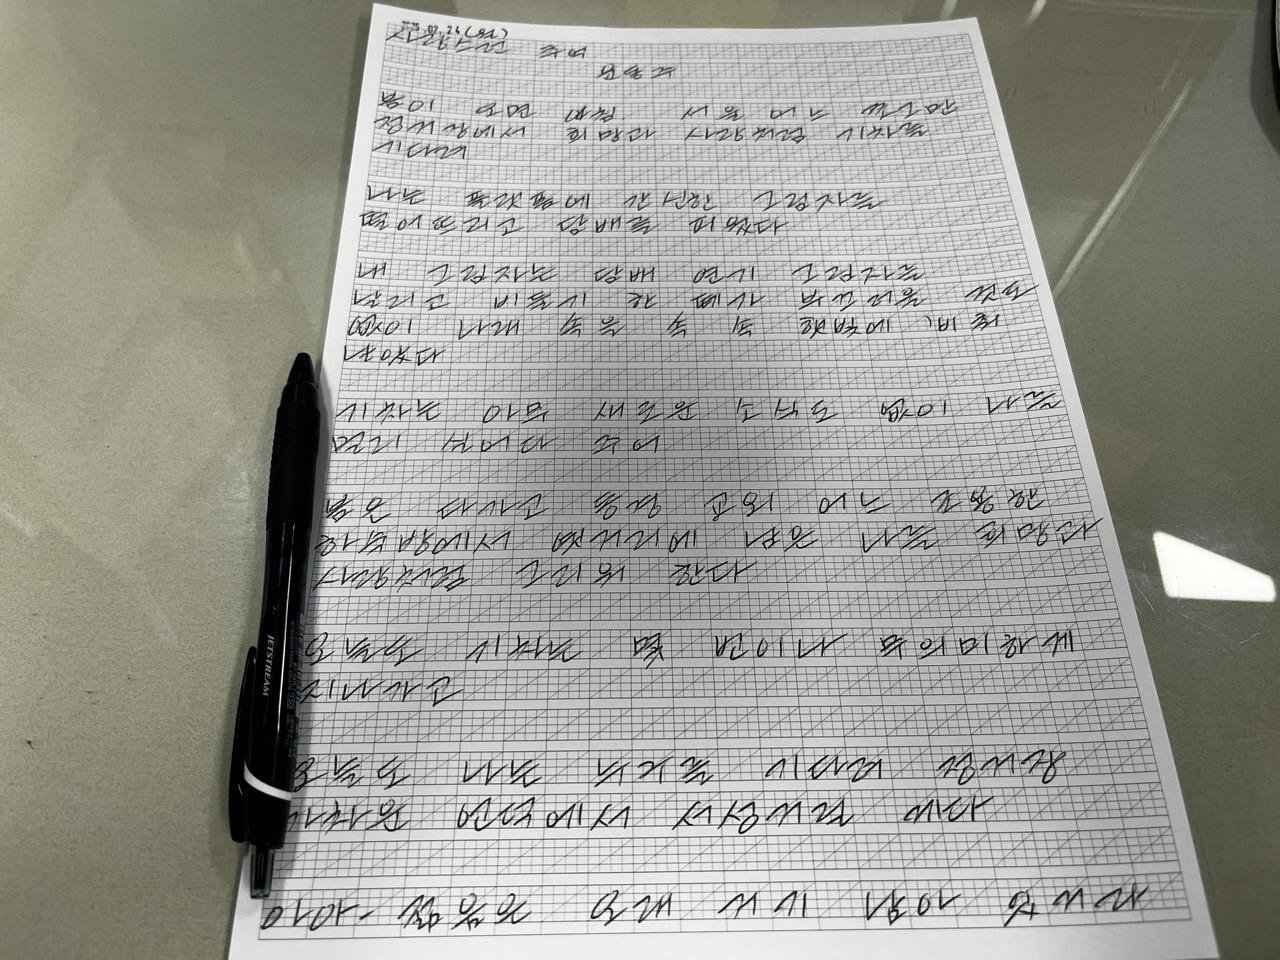 2025.02.24(월)
사랑스런 추억
윤동주
봄이 오던 아침, 서울 어느 쪼그만
정거장에서 희망과 사랑처럼 기차를
기다려
나는 플랫폼에 간신한 그림자를
떨어뜨리고 담배를 피웠다
내 그림자는 담배 연기 그림자를
날리고 비둘기 한 떼가 부끄러울 것도
없이 나래 속을 속 속 햇빛에 비춰
날았다
기차는 아무 새로운 소식도 없이 나를
멀리 실어다 주어
봄은 다 가고 동경 교외 어느 조용한
하숙방에서 옛거리에 남은 나를 희망과
사랑처럼 그리워 한다
오늘도 기차는 몇 번이나 무의미하게
지나가고
오늘도 나는 누구를 기다려 정거장
가차운 언덕에서 서성거릴 게다
아아- 젊음은 오래 거기 남아 있거라
JETSTREAM